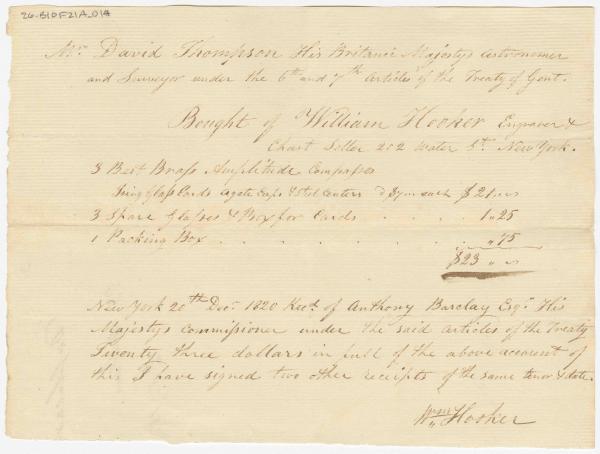 26-B10F21A_014
Mr. David Thompson His Britanic Majestys astronomer
and Surveyor under the 6th and 7th Articles of the Treaty of Gent.
Bought of William Hooker Engraver &
Chart Seller 202 Water St. New York.
3 Best Brass Amplitude Compasses
Glass Cards Agate Caps & Steel Centers each $21 " "
3 Spare Glasses & Box for Cards . . . . 1 " 25
1 Packing Box . . . . . . . . . " 75
$23 " "
New York 20th Decr. 1820 Recd. of Anthony Barclay Esqr. His
Majestys commissioner under the said articles of the Treaty
Twenty three dollars in full of the above account of
this I have signed two other receipts of the same tenor & date.
Wm Hooker